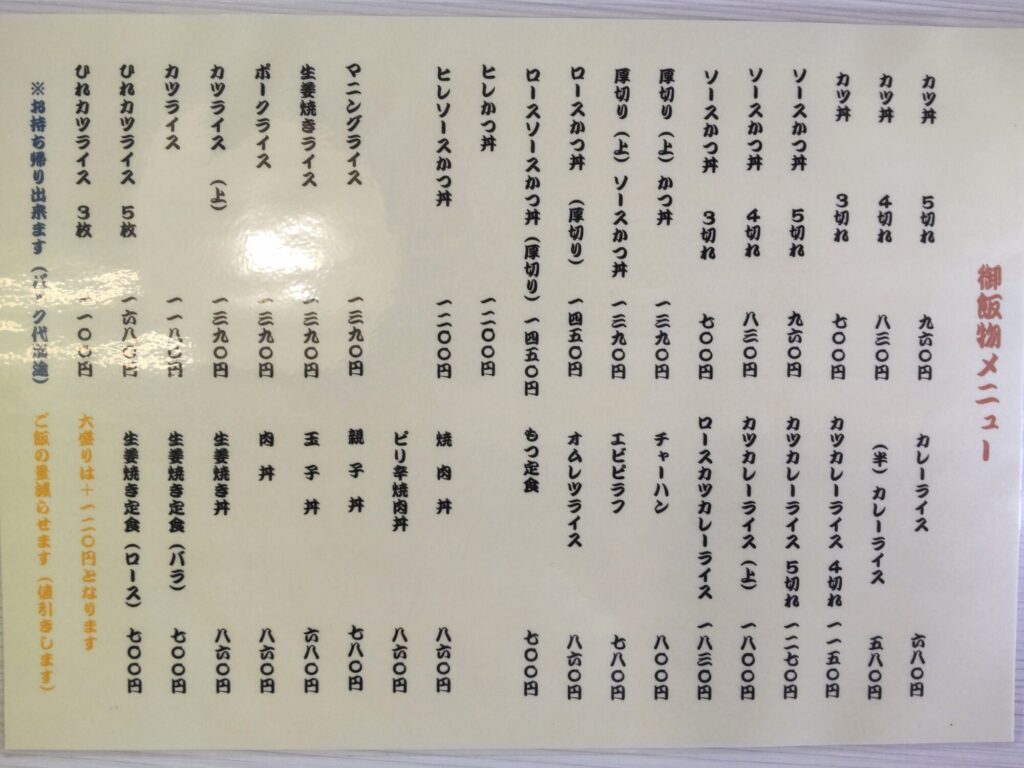 御飯物メニュー
カツ丼 5切れ 九六〇円
カツ丼 4切れ 八三〇円
カツ丼 3切れ 七〇〇円
ソースかつ丼 5切れ 九六〇円
ソースかつ丼 4切れ 八三〇円
ソースかつ丼 3切れ 七〇〇円
厚切り(上)かつ丼 一三九〇円
厚切り(上)ソースかつ丼 一三九〇円
ロースかつ丼 (厚切り) 一四五〇円
ロースソースかつ丼(厚切り) 一四五〇円
ヒレかつ丼 一二〇〇円
ヒレソースかつ丼 一二〇〇円
マニングライス 一三九〇円
生姜焼きライス 一三九〇円
ポークライス 一三九〇円
カツライス (上) 一三九〇円
カツライス 一一八〇円
ひれカツライス 5枚 一六八〇円
ひれカツライス 3枚 一一〇〇円
※お持ち帰り出来ます(パック代別途)
カレーライス 六八〇円
(半)カレーライス 五八〇円
カツカレーライス 4切れ 一一五〇円
カツカレーライス 5切れ 一二七〇円
カツカレーライス(上) 一八〇〇円
ロースカツカレーライス 一八三〇円
チャーハン 八〇〇円
エビピラフ 七八〇円
オムレツライス 八六〇円
もつ定食 七〇〇円
焼肉丼 八六〇円
ピリ辛焼肉丼 八六〇円
親子丼 七八〇円
玉子丼 六八〇円
肉丼 八六〇円
生姜焼き丼 八六〇円
生姜焼き定食(バラ) 七〇〇円
生姜焼き定食(ロース) 七〇〇円
大盛りは+一二〇円となります
ご飯の量減らせます(値引きします)